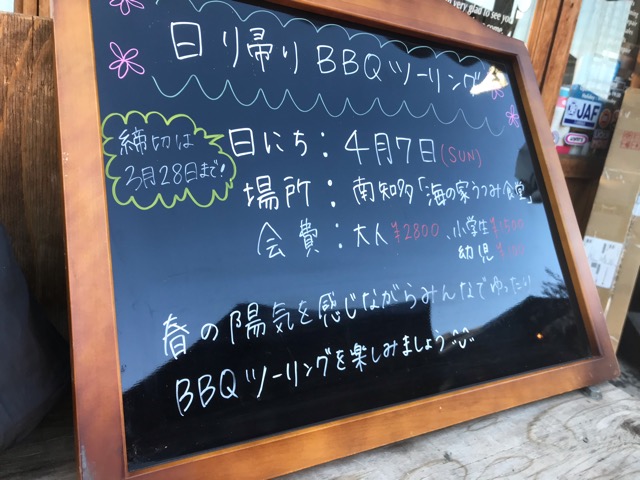 日り帰りBBQツーリング
締切は
3月28日まで!
日にち:4月7日(SUN)
場所:南知多「海の家うつみ食堂」
会費:大人¥2800、小学生
幼児
春の陽気を感じながらみんなでゆったり
BBQツーリングを楽しみましょう
very glad to see you
JAF